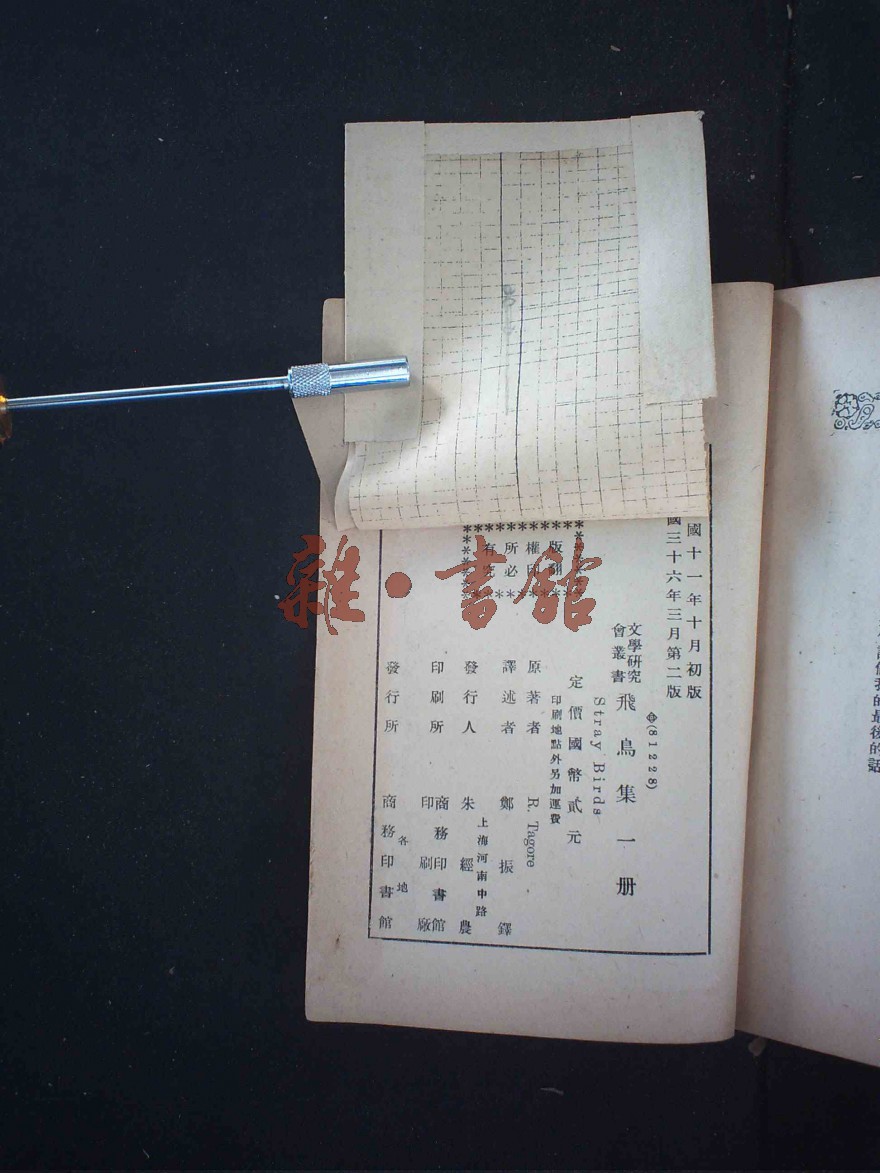 國十一年十月初版
國三十六年三月第二版
(81228)
文學研究
會叢書
飛鳥集一册
Stray Birds
定價國幣貳元
印刷地點外另加運費
版權所有
翻印必究
原著者 R. Tagore
譯述者 鄭振鐸
發行人 朱經農
上海河南中路
印刷所 商務印書館
印刷廠
發行所 各地
商務印書館
的最後的話
雜·書館